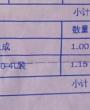 小计
数量
成 1.00
0-4L装 1.15
小计